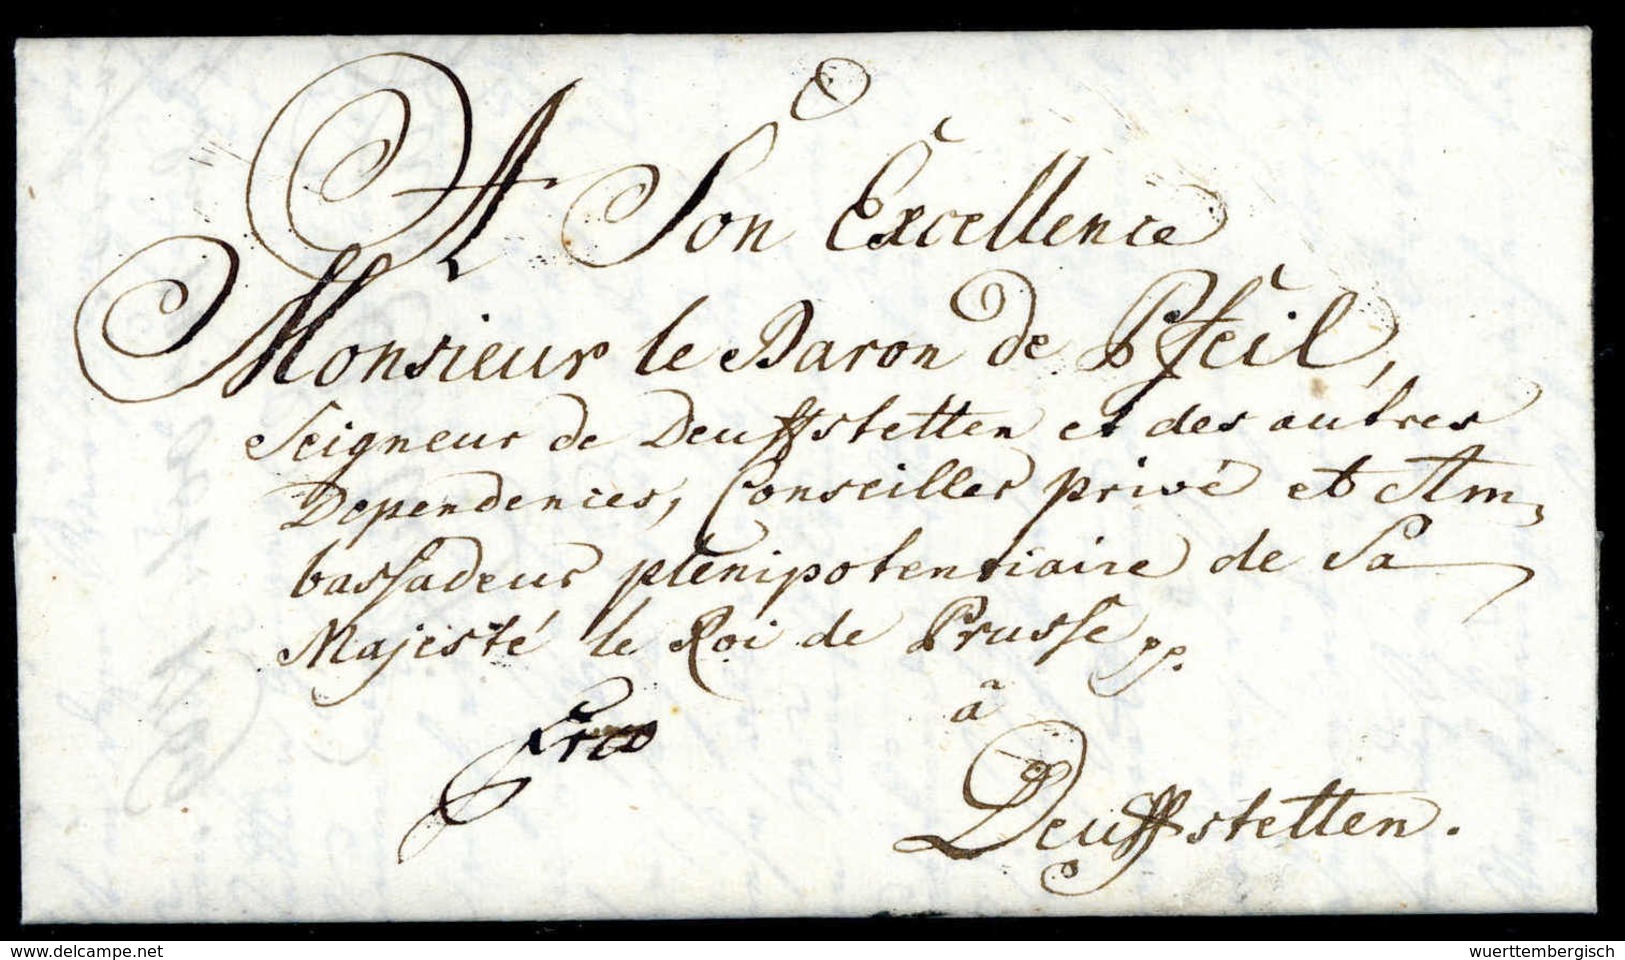 A Son Excellence
Monsieur le Baron de Pfeil,
Seigneur de Deuffstetten et des autres
Dependences, Conseiller privé et Am,
bassadeur plenipotentiaire de Sa
Majesté le Roi de Prusse pp.
à
Frco
Deuffstetten.
www.delcampe.net
wuerttembergisch